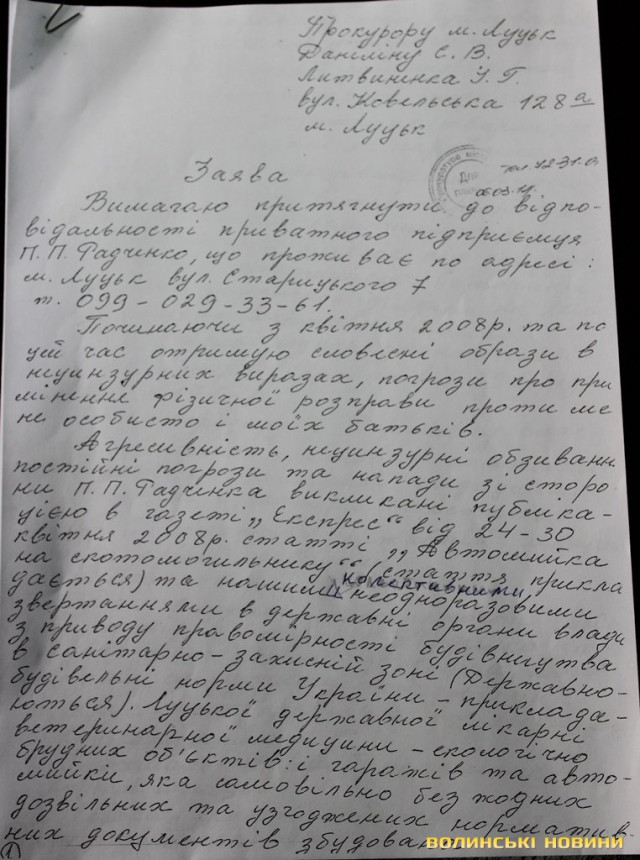 Прокурору м. Луцьк
Даніліну С. В.
Литвиненка І. Г.
вул. Ковельська 128 а
м. Луцьк
Заява
Вимагаю притягнути до відпо-
відальності приватного підприємця
П. П. Фадченко, що проживає по адресі:
м. Луцьк вул. Старицького 7
т. 099-029-33-61.
Починаючи з квітня 2008р. та по
цей час отримую словесні образи в
нецинзурних виразах, погрози про при
мінення фізичної розправи проти ме
не особисто і моїх батьків.
Агресивність, нецинзурні обзиванн
постійні погрози та напади зі сторо
ни П.П. Фадченка викликані публіка-
цією в газеті „Експрес“ від 24-30
квітня 2008р. статті „Автомийка
на скотомогильнику“ (стаття прикла
дається) та нашими колективними, неодноразовими
звертаннями в державні органи влади
з приводу правомірності будівництва
в санітарно-захисній зоні (Державно-
будівельні норми України - приклада-
ються). Луцької державної лікарні
ветеринарної медицини - екологічно
брудних об'єктів: і гаражів та авто-
мийки, яка самовільно без жодних
дозвільних та узгоджених норматив-
них документів збудована
1
ВОЛИНСЬКІ НОВИНИ